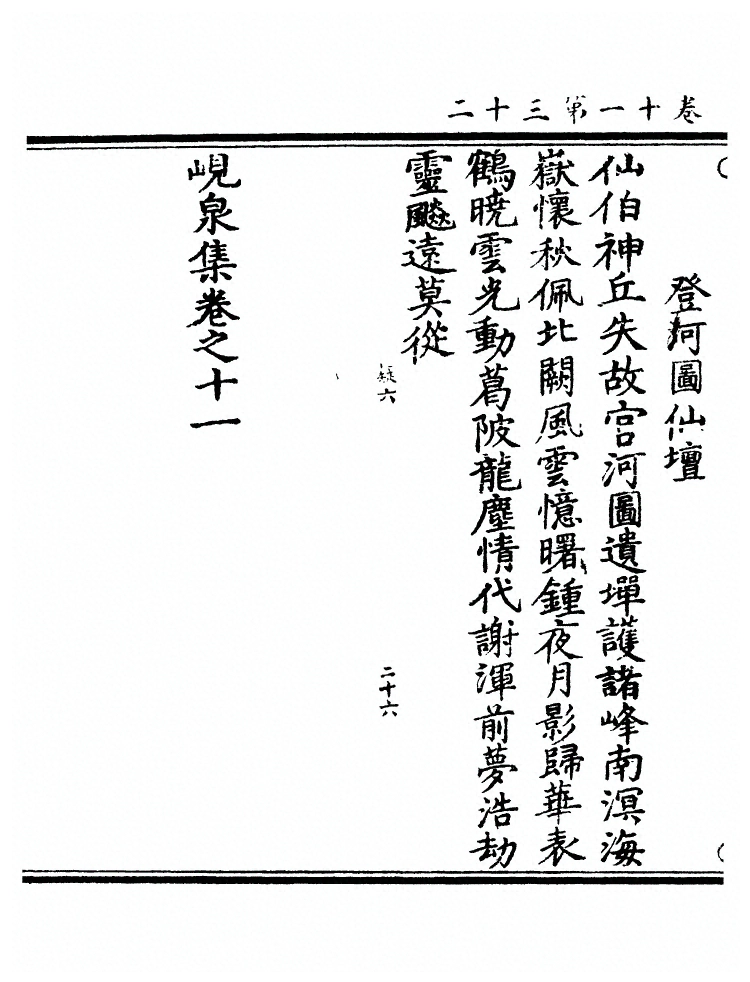 卷十一第三十二
登河圖仙壇
仙伯神丘失故宮河圖遺墠護諸峰南溟海
嶽懷秋佩北闕風雲憶曙鍾夜月影歸華表
鶴曉雲光動葛陂龍塵情代謝渾前夢浩劫
靈飈遠莫從
疑六
二十六
峴泉集卷之十一